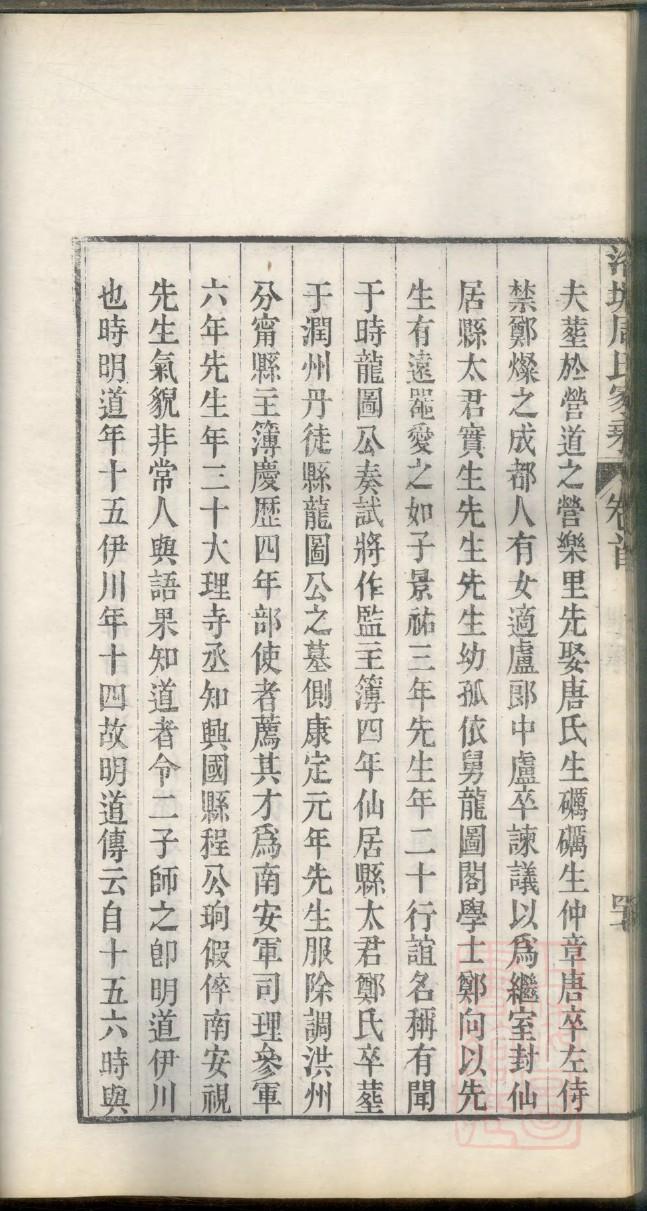 周氏家乘 卷首
夫塟於營道之營樂里先娶唐氏生礪礪生仲章唐卒左侍
禁鄭燦之成都人有女適盧郎中盧卒諫議以爲繼室封仙
居縣太君實生先生先生幼孤依舅龍圖閣學士鄭向以先
生有遠噐愛之如子景祐三年先生年二十行誼名稱有聞
于時龍圖公奏試將作監主簿四年仙居縣太君鄭氏卒塟
于潤州丹徒縣龍圖公之墓側康定元年先生服除調洪州
分甯縣主簿慶歷四年部使者薦其才爲南安軍司理參軍
六年先生年三十大理寺丞知興國縣程公珦假倅南安視
先生氣貌非常人與語果知道者令二子師之卽明道伊川
也時明道年十五伊川年十四故明道傳云自十五六時與